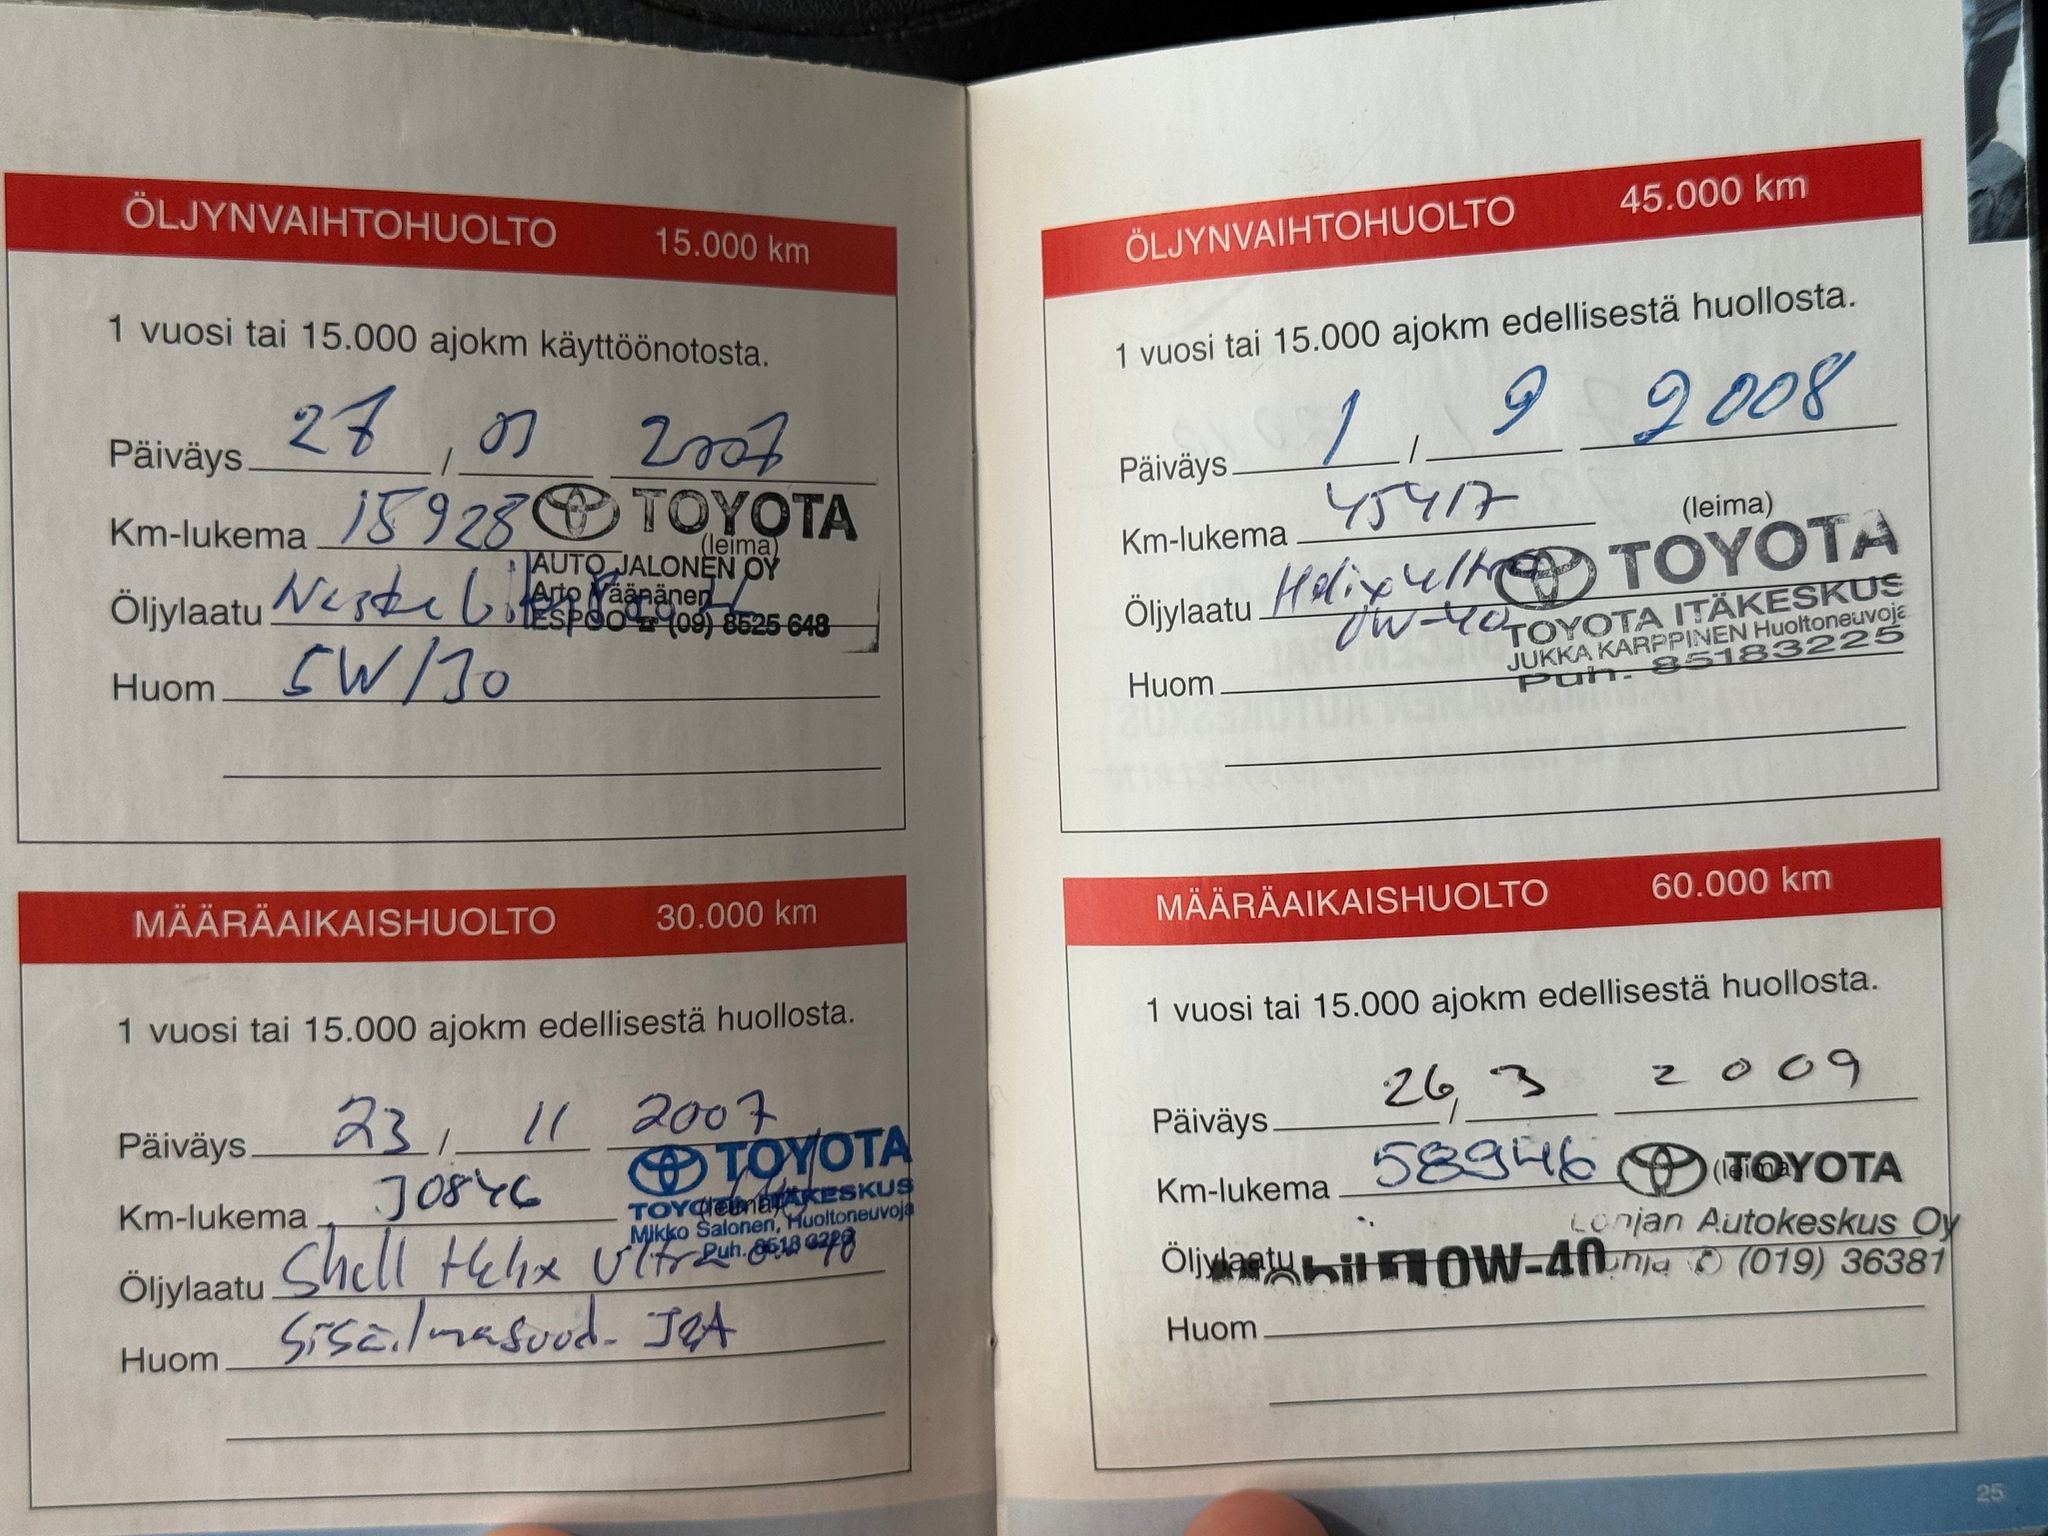 ÖLJYNVAIHTOHUOLTO 15.000 km
1 vuosi tai 15.000 ajokm käyttöönotosta.
Päiväys 27 / 2007
Km-lukema 15928 TOYOTA
(leima)
AUTO JALONEN OY
Arto Väänänen
Öljylaatu Neste
ESPOO ☎ (09) 8525 648
Huom 5W/30
MÄÄRÄAIKAISHUOLTO 30.000 km
1 vuosi tai 15.000 ajokm edellisestä huollosta.
Päiväys 23 / 11 2007
TOYOTA
Km-lukema 30846 (leima)
TOYOTA ITÄKESKUS
Mikko Salonen, Huoltoneuvoja
Puh. 8518
Öljylaatu Shell Helix Ultra 0W-40
Huom
ÖLJYNVAIHTOHUOLTO 45.000 km
1 vuosi tai 15.000 ajokm edellisestä huollosta.
Päiväys 1 / 9 2008
Km-lukema 45417 (leima)
TOYOTA
Öljylaatu Helix Ultra
0W-40
TOYOTA ITÄKESKUS
JUKKA KARPPINEN Huoltoneuvoja
Puh. 85183225
Huom
MÄÄRÄAIKAISHUOLTO 60.000 km
1 vuosi tai 15.000 ajokm edellisestä huollosta.
Päiväys 26 / 3 2009
Km-lukema 58946 (leima) TOYOTA
Lohjan Autokeskus Oy
Öljylaatu Mobil 1 0W-40 Lohja ✆ (019) 36381
Huom
25